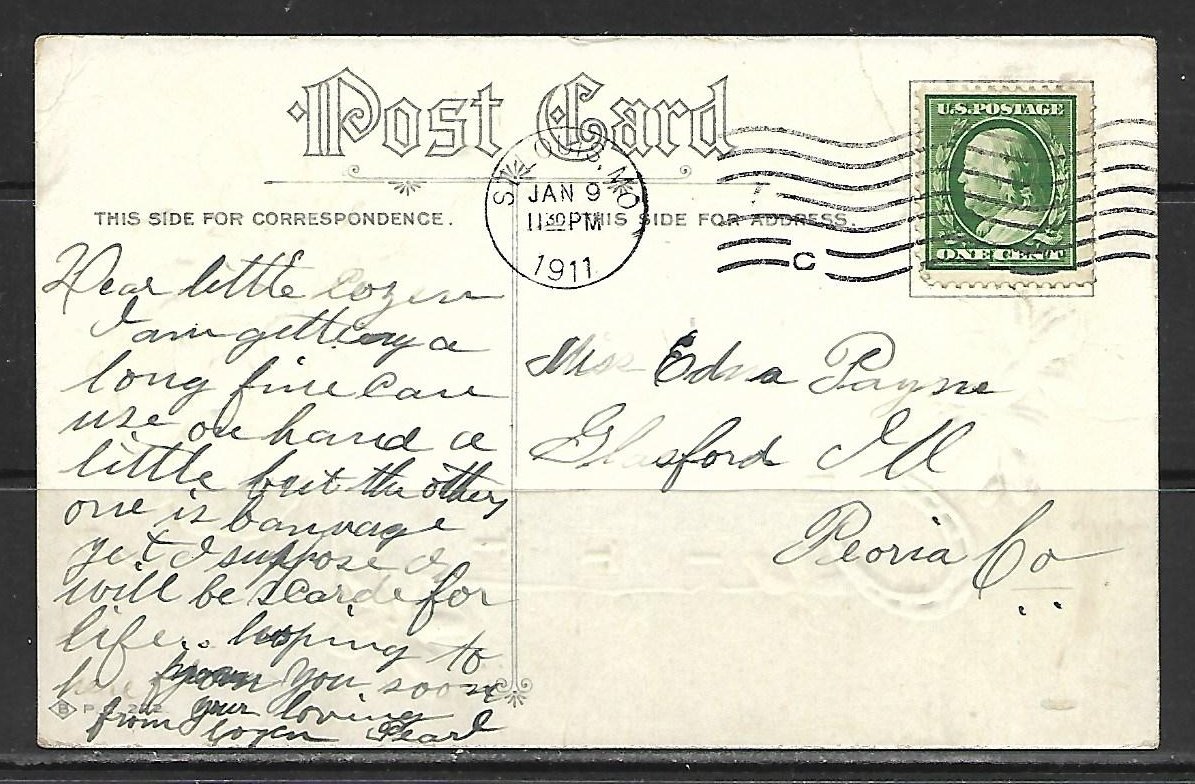 Post Card
ST. LOUIS, MO.
JAN 9
11 30 PM
1911
C
U.S. POSTAGE
ONE CENT
THIS SIDE FOR CORRESPONDENCE.
THIS SIDE FOR ADDRESS.
Dear little cozen
I am getting a
long fine can
use on hand a
little but the other
one is banvage
yet I suppose I
will be scarde for
life. hoping to
here from you soon
your loving
from cozen Pearl
Miss Edna Payne
Glasford Ill
Peoria Co
B P. 222